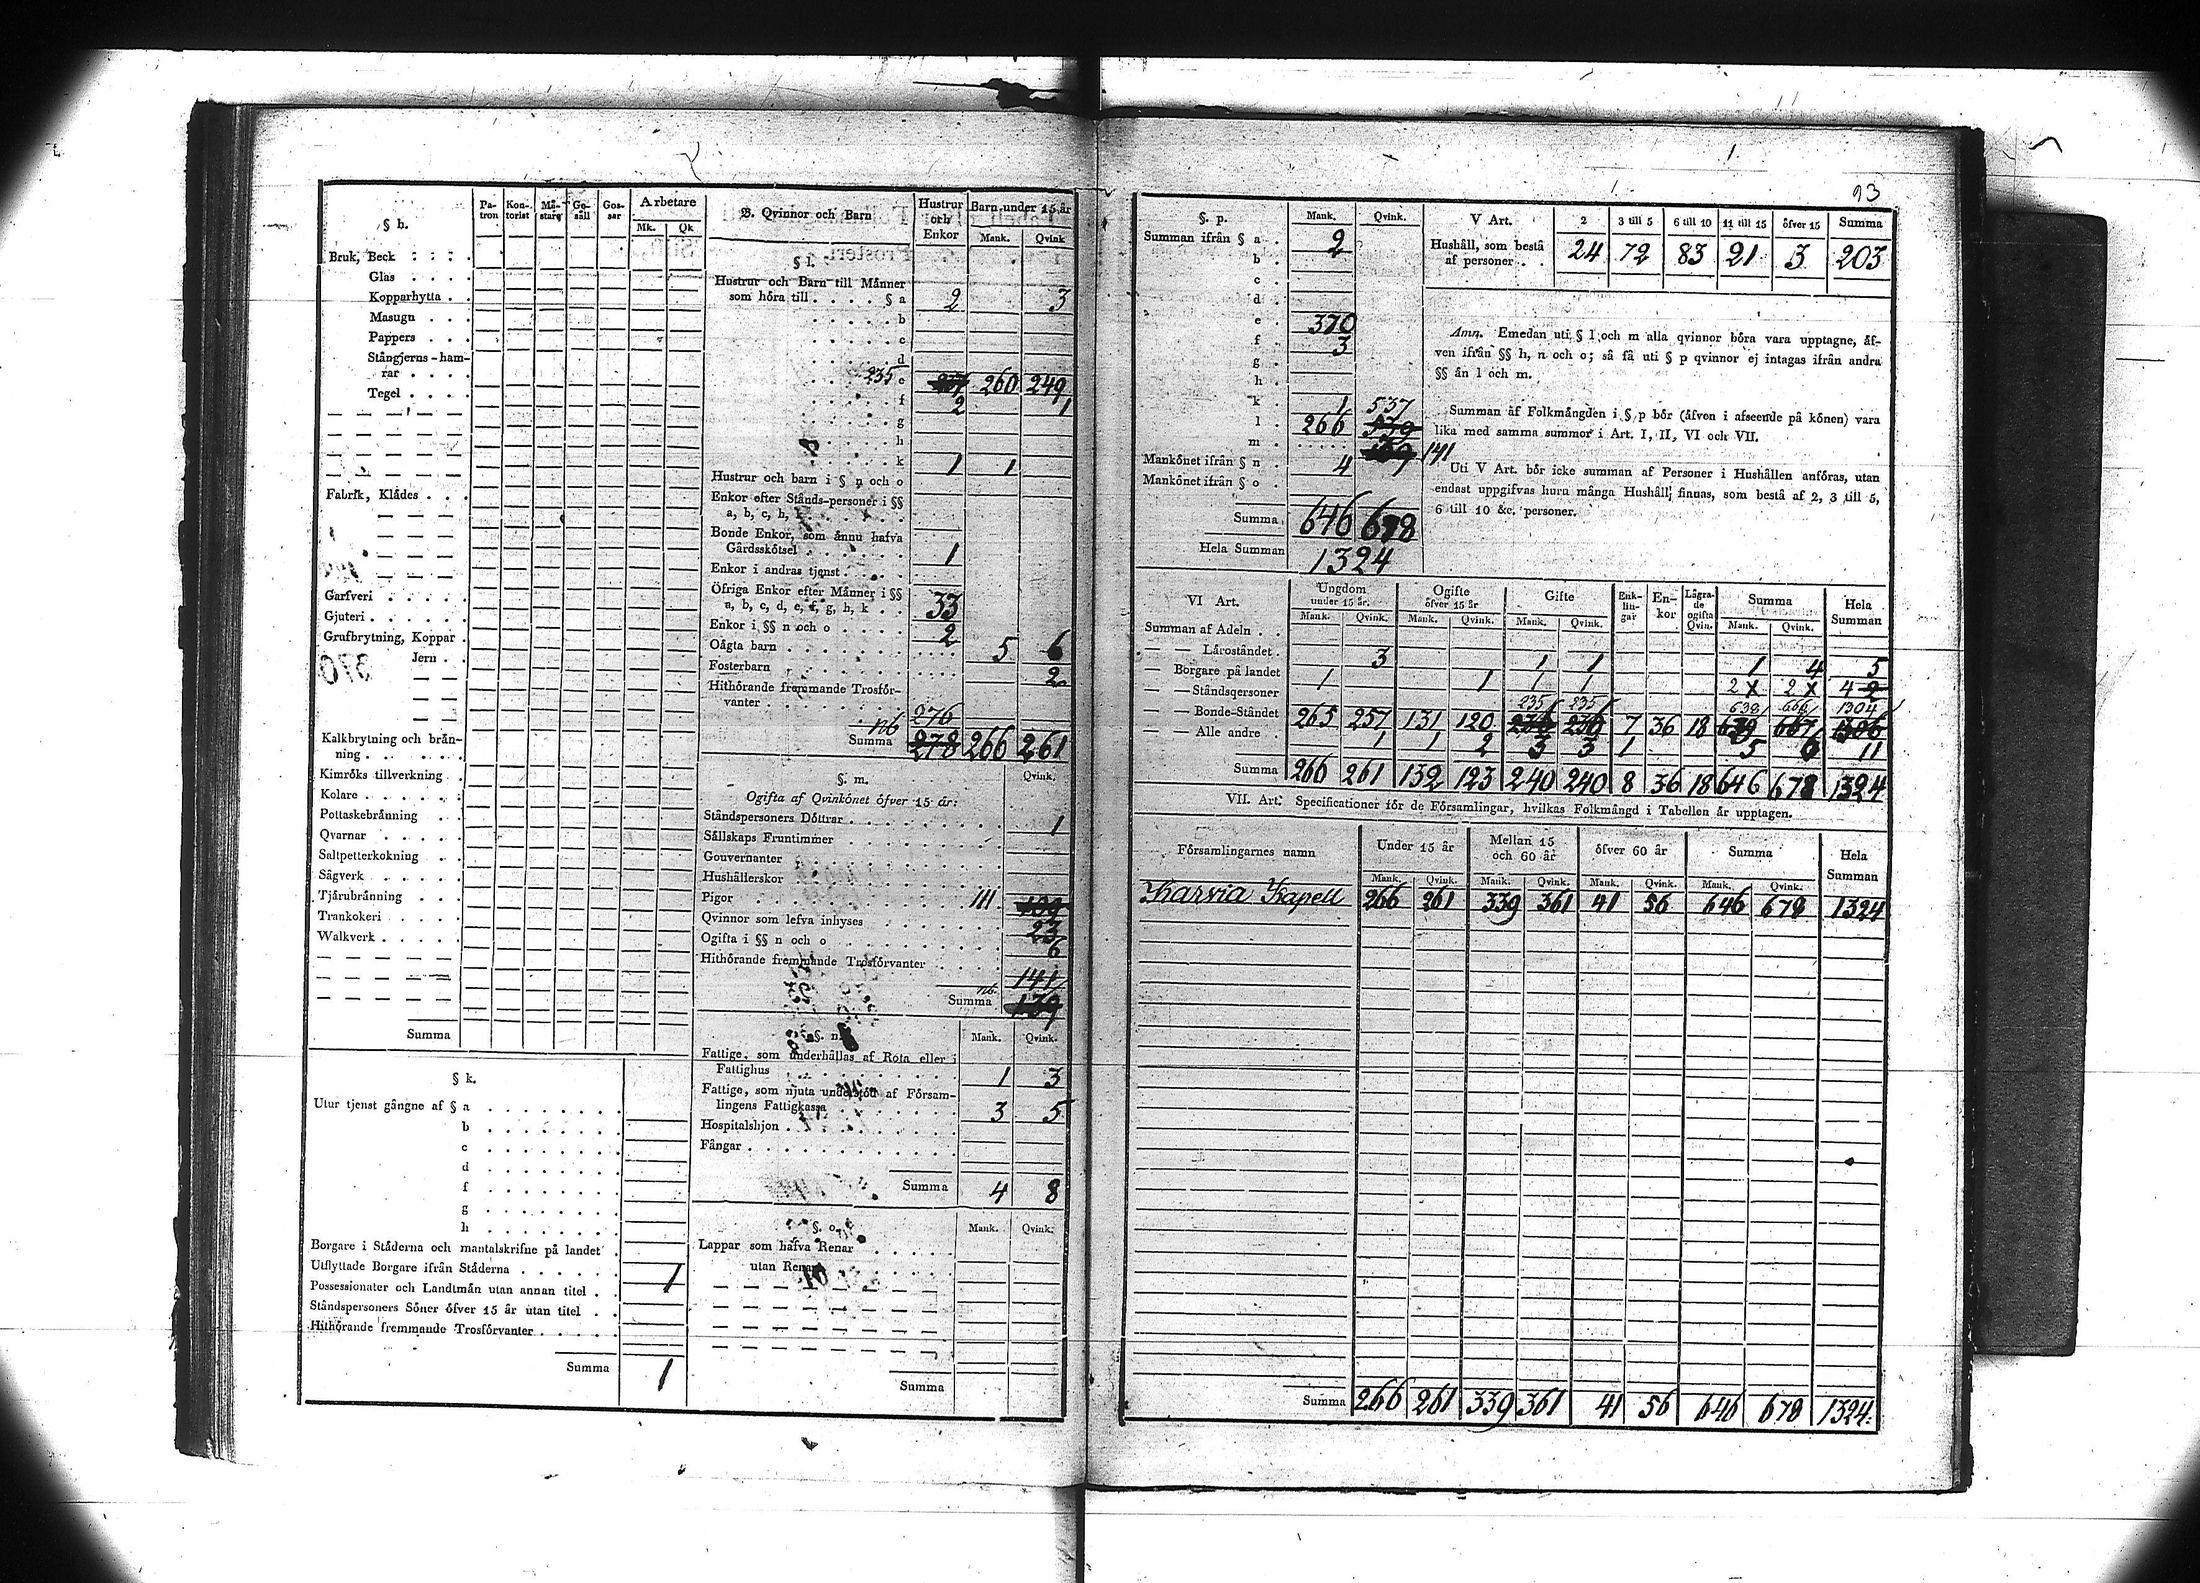 § h.
Pa-
tron
Kon-
torist
Må-
stare
Ge-
säll
Gos-
sar
Arbetare
Mk. Qk
Bruk, Beck
Glas
Kopparhytta
Masugn
Pappers
Stångjerns-ham-
rar
Tegel
Fabrik, Klådes
Garfveri
Gjuteri
Grufbrytning, Koppar
Jern
Kalkbrytning och brån-
ning
Kimröks tillverkning
Kolare
Pottaskebrånning
Qvarnar
Saltpetterkokning
Sågverk
Tjårubrånning
Trankokeri
Walkverk
Summa
§ k.
Utur tjenst gångne af § a
b
c
d
f
g
h
Borgare i Ståderna och mantalskrifne på landet
Utflyttade Borgare ifrån Ståderna
Possessionater och Landtmån utan annan titel 1
Ståndspersoners Söner öfver 15 år utan titel
Hithörande fremmande Trosförvanter
Summa 1
B. Qvinnor och Barn
Hustrur
och
Enkor
Barn under 15 år
Mank. Qvink
§ l.
Hustrur och Barn till Månner
som höra till § a 2 3
b
c
d
235 e 237 260 249
f 2 1
g
h
k 1 1
Hustrur och barn i § n och o
Enkor efter Stånds-personer i §§
a, b, c, h, k
Bonde Enkor, som ånnu hafva
Gårdsskötsel 1
Enkor i andras tjenst
Öfriga Enkor efter Månner i §§
a, b, c, d, e, f, g, h, k 33
Enkor i §§ n och o 2
Oågta barn 5 6
Fosterbarn 2
Hithörande fremmande Trosför-
vanter
276
nb
Summa 278 266 261
§. m. Qvink.
Ogifta af Qvinkönet öfver 15 år:
Ståndspersoners Döttrar 1
Sållskaps Fruntimmer
Gouvernanter
Hushållerskor
Pigor 111 109
Qvinnor som lefva inhyses 23
Ogifta i §§ n och o 6
Hithörande fremmande Trosförvanter
141
nb.
Summa 139
§. n. Mank. Qvink.
Fattige, som underhållas af Rota eller i
Fattighus 1 3
Fattige, som njuta understöd af Försam-
lingens Fattigkassa 3 5
Hospitalshjon
Fångar
Summa 4 8
§. o. Mank. Qvink.
Lappar som hafva Renar
utan Renar
Summa
93
§. p. Mank. Qvink.
Summan ifrån § a 2
b
c
d
e 370
f 3
g
h
k 1 537
l 266 539
m 139 141
Mankönet ifrån § n 4
Mankönet ifrån § o
Summa 646 678
Hela Summan 1324
V Art. 2 3 till 5 6 till 10 11 till 15 öfver 15 Summa
Hushåll, som bestå
af personer 24 72 83 21 3 203
Anm. Emedan uti § l och m alla qvinnor böra vara upptagne, åf-
ven ifrån §§ h, n och o; så få uti § p qvinnor ej intagas ifrån andra
§§ ån l och m.
Summan af Folkmångden i § p bör (åfven i afseende på könen) vara
lika med samma summor i Art. I, II, VI och VII.
Uti V Art. bör icke summan af Personer i Hushållen anföras, utan
endast uppgifvas huru många Hushåll finnas, som bestå af 2, 3 till 5,
6 till 10 &c. personer.
VI Art.
Ungdom
under 15 år.
Ogifte
öfver 15 år
Gifte
Enk-
lin-
gar
En-
kor
Lågra-
de
ogifta
Qvin.
Summa
Hela
Summan
Mank. Qvink. Mank. Qvink. Mank. Qvink. Mank. Qvink.
Summan af Adeln
— Låroståndet 3 1 1 1 4 5
— Borgare på landet 1 1 1 1 2 2 4 2
— Ståndspersoner
235 235 638 666 1304
— Bonde-Ståndet 265 257 131 120 236 236 7 36 18 639 667 1306
— Alle andre 1 1 2 3 3 1 5 6 11
Summa 266 261 132 123 240 240 8 36 18 646 678 1324
VII. Art. Specificationer för de Församlingar, hvilkas Folkmångd i Tabellen år upptagen.
Församlingarnes namn
Under 15 år
Mellan 15
och 60 år
öfver 60 år
Summa
Hela
Summan
Mank. Qvink. Mank. Qvink. Mank. Qvink. Mank. Qvink.
Karvia Kapell 266 261 339 361 41 56 646 678 1324
Summa 266 261 339 361 41 56 646 678 1324.